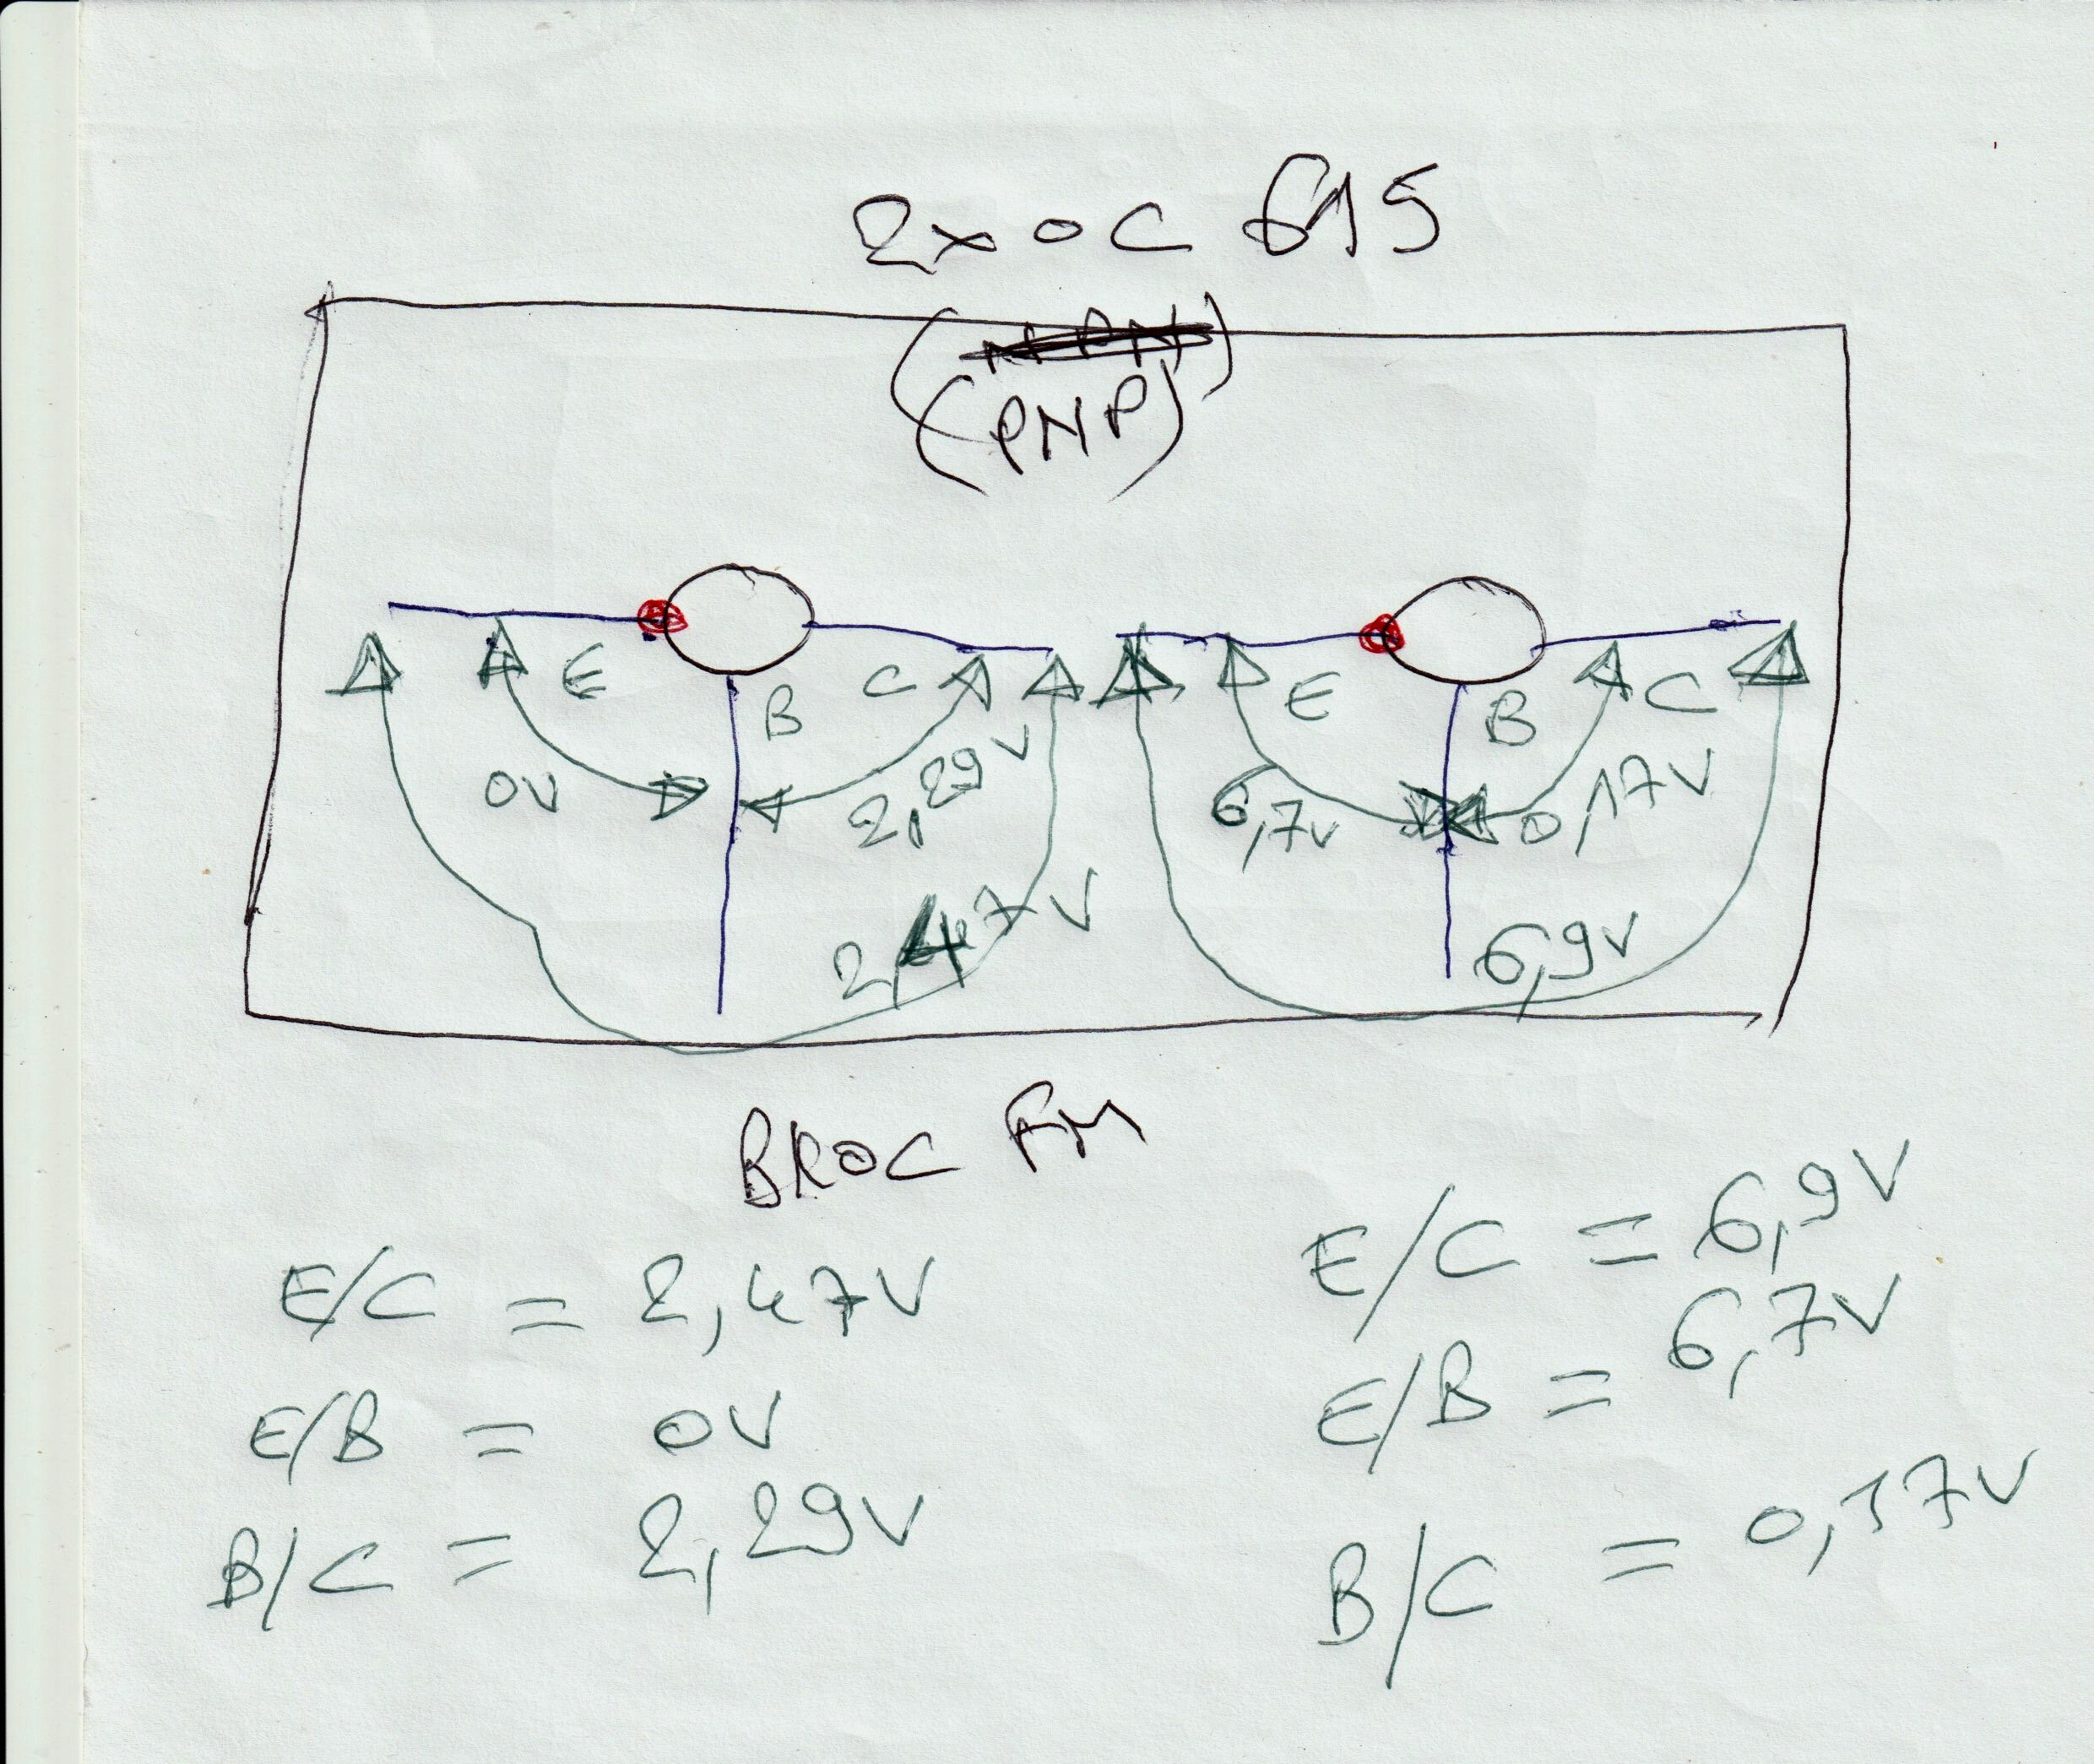 2x OC 615
(PNP)
E B C E B C
0V 2,29V 6,7V 0,17V
2,47V 6,9V
BROC FM
E/C = 2,47V
E/B = 0V
B/C = 2,29V
E/C = 6,9V
E/B = 6,7V
B/C = 0,17V